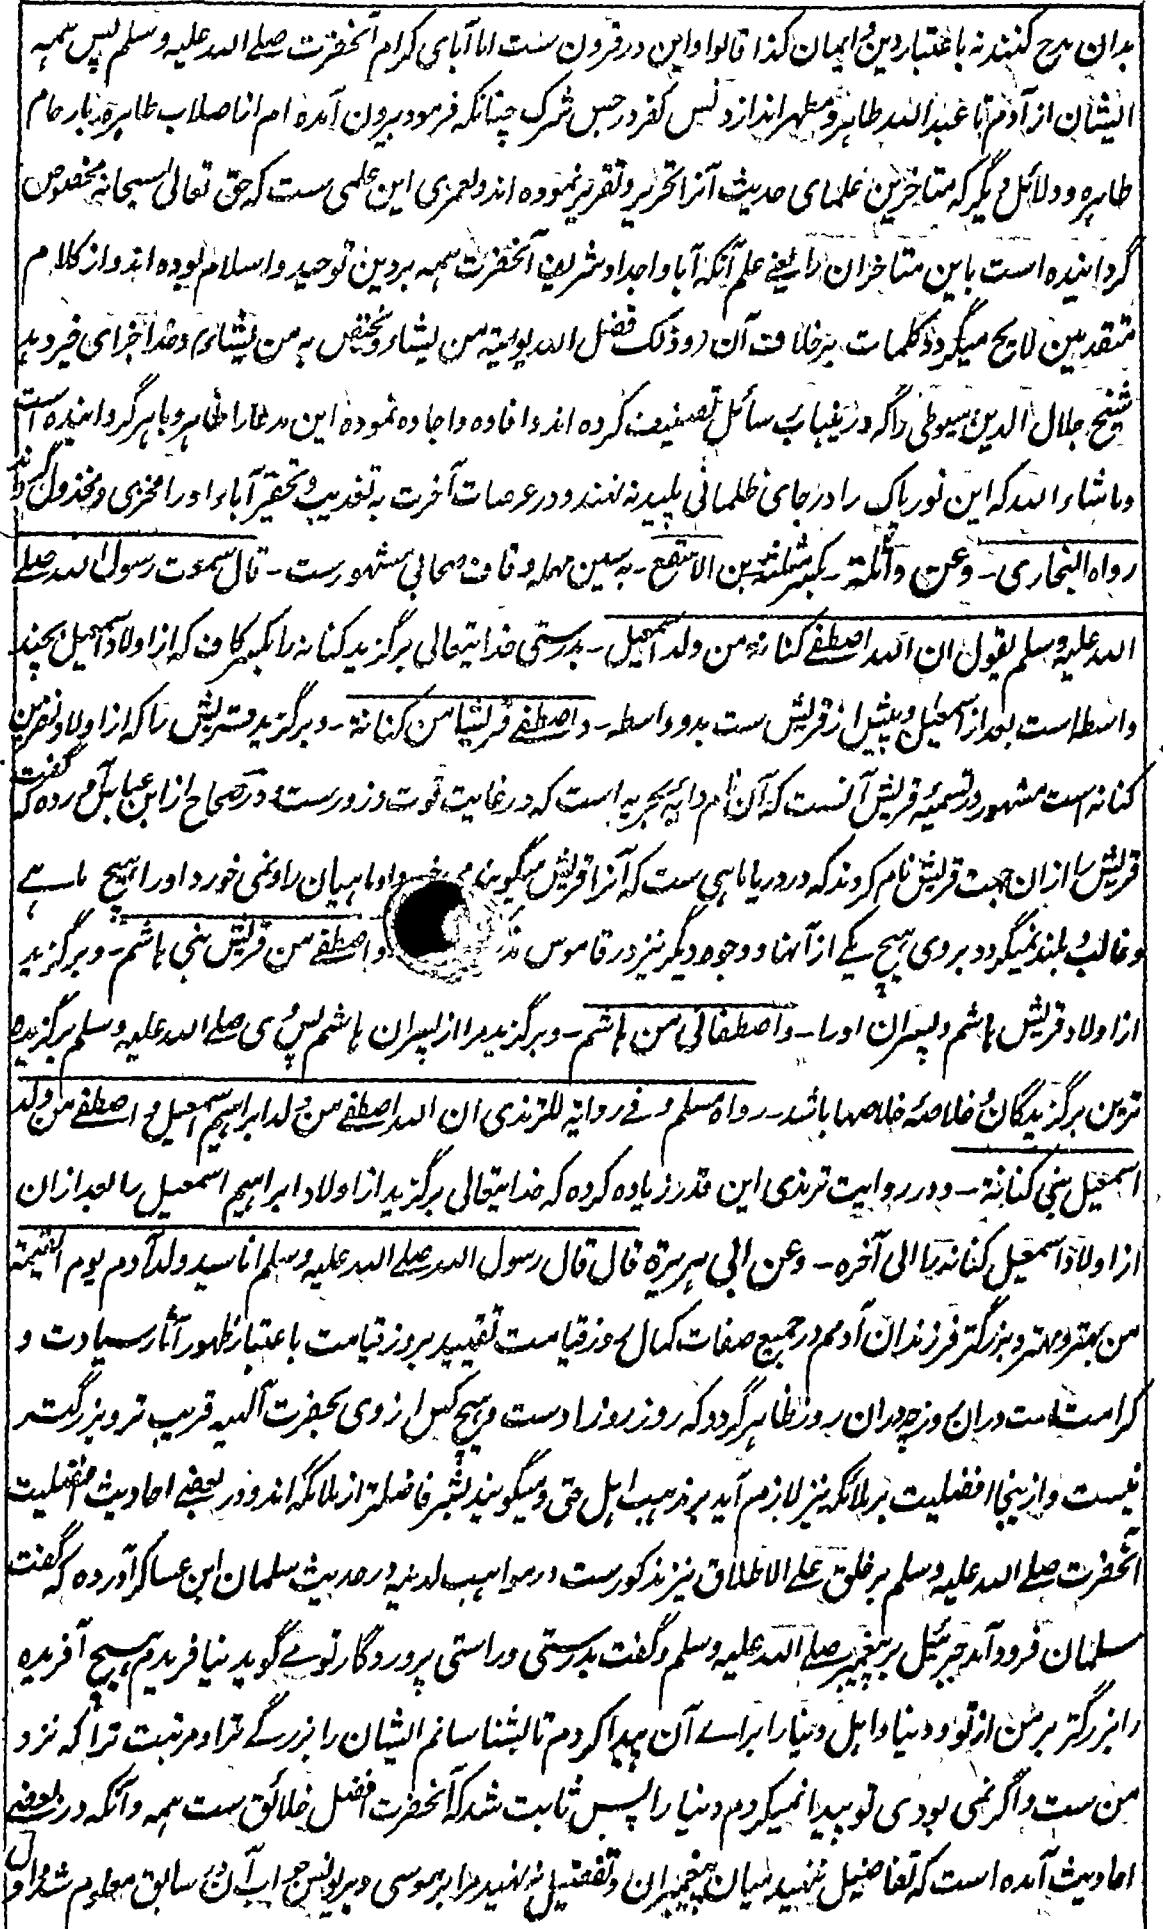 بدان مدح کنند نه باعتبار دین و ایمان کذا قالوا و این در قرون ست اما آبای کرام آنحضرت صلے اللہ علیہ وسلم پس ہمہ
ایشان از آدم تا عبد اللہ طاہر و مطہر اند از دنس کفر و رجس شرک چنانکہ فرمود بیرون آمدہ ام از اصلاب طاہرہ بارحام
طاہرہ و دلائل دیگر کہ متاخرین علمای حدیث آنرا تحریر و تقریر نمودہ اند و لعمری این علمی ست کہ حق تعالی سبحانہ مخصوص
گردانیدہ است باین متاخران را یعنے علم آنکہ آبا و اجداد شریف آنحضرت ہمہ بر دین توحید و اسلام بودہ اند و از کلام
متقدمین لایح میگردد کلمات بر خلاف آن و ذلک فضل اللہ یوتیہ من یشاء و یختص بہ من یشاء و خدا جزای خیر دہد
شیخ جلال الدین سیوطی را کہ درینباب رسائل تصنیف کردہ اند و افادہ و اجادہ نمودہ این مدعا را ظاہر و باہر گردانیدہ است
و حاشا للہ کہ این نور پاک را در جای ظلمانی پلید نہند و در عرصات آخرت بہ تعذیب و تحقیر آباء او را مخزی و مخذول گردانند
رواہ البخاری ۔ وعن واثلۃ ۔ بکسر مثلثہ بن الاسقع ۔ بہ سین مہملہ و قاف صحابی مشہور ست ۔ قال سمعت رسول اللہ صلے
اللہ علیہ وسلم یقول ان اللہ اصطفے کنانۃ من ولد اسمعیل ۔ بدرستی خدایتعالی برگزید کنانہ را بکسر کاف کہ از اولاد اسمعیل بچند
واسطہ است بعد از اسمعیل و پیش از قریش ست بدو واسطہ ۔ و اصطفے قریشا من کنانۃ ۔ و برگزید قریش را کہ از اولاد نضر بن
کنانہ است مشہور در تسمیۂ قریش آنست کہ آن نام دابۂ بحریہ است کہ در غایت قوت و زور ست و در صحاح از ابن عباس آمردہ کہ گفت
قریش را ازان جہت قریش نام کردند کہ در دریا ماہی ست کہ آنرا قریش میگویند می خورد او ماہیان را و نمی خورد او را ہیچ ماہے
و غالب و بلند نمیگردد بروی ہیچ یکے از آنہا و وجوہ دیگر نیز در قاموس و اصطفے من قریش بنی ہاشم ۔ و برگزید
از اولاد قریش ہاشم و پسران او را ۔ و اصطفانی من ہاشم ۔ و برگزید مرا از پسران ہاشم پس وی صلے اللہ علیہ وسلم برگزیدہ
ترین برگزیدگان و خلاصۂ خلاصہا باشد ۔ رواہ مسلم و فے روایۃ للترمذی ان اللہ اصطفے من ولد ابراہیم اسمعیل و اصطفے من ولد
اسمعیل بنی کنانۃ ۔ و در روایت ترمذی این قدر زیادہ کردہ کہ خدایتعالی برگزید از اولاد ابراہیم اسمعیل را بعد ازان
از اولاد اسمعیل کنانہ را الی آخرہ ۔ وعن ابی ہریرۃ قال قال رسول اللہ صلے اللہ علیہ وسلم انا سید ولد آدم یوم القیمۃ
من بہتر و مہتر و بزرگتر فرزندان آدمم در جمیع صفات کمال روز قیامت تقیید بروز قیامت باعتبار ظہور آثار سیادت و
کرامت است دران روز چہ دران روز ظاہر گردد کہ روز روز اوست و ہیچ کس از وی بحضرت الٰہیہ قریب تر و بزرگتر
نیست و ازینجا افضلیت بر ملائکہ نیز لازم آید بر مذہب اہل حق و میگویند بشر فاضلتر از ملائکہ اند و در بعضے احادیث افضلیت
آنحضرت صلے اللہ علیہ وسلم بر خلق علے الاطلاق نیز مذکورست در مواہب لدنیہ در حدیث سلمان ابن عساکر آوردہ کہ گفت
سلمان فرود آمد جبرئیل بر پیغمبر صلے اللہ علیہ وسلم و گفت بدرستی و راستی پروردگار تو مے گوید نیافریدم ہیچ آفریدہ
را بزرگتر بر من از تو و دنیا و اہل دنیا را براے آن پیدا کردم تا بشناسانم ایشان را بزرگے ترا و مرتبت ترا کہ نزد
من ست و اگر نمی بودی تو پیدا نمیکردم دنیا را پس ثابت شد کہ آنحضرت افضل خلائق ست ہمہ و آنکہ در بعضے
احادیث آمدہ است کہ تفاضیل ننہید میان پیغمبران و تفضیل ننہید مرا بر موسی و بر یونس جواب آن در سابق معلوم شد و اول